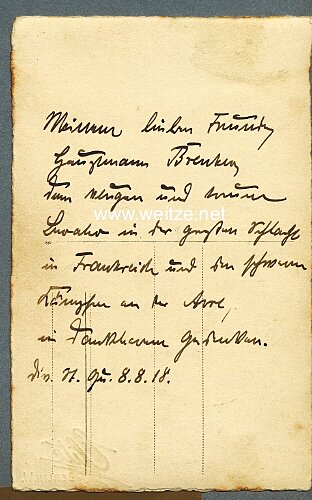 Meinem lieben Freunde
Hauptmann Brenken
dem klugen und treuen
Berater in der großen Schlacht
in Frankreich und den schweren
Kämpfen an der Avre,
in dankbarem Gedenken.
Div. St. Qu. 8.8.18.
© weitze.net
www.weitze.net